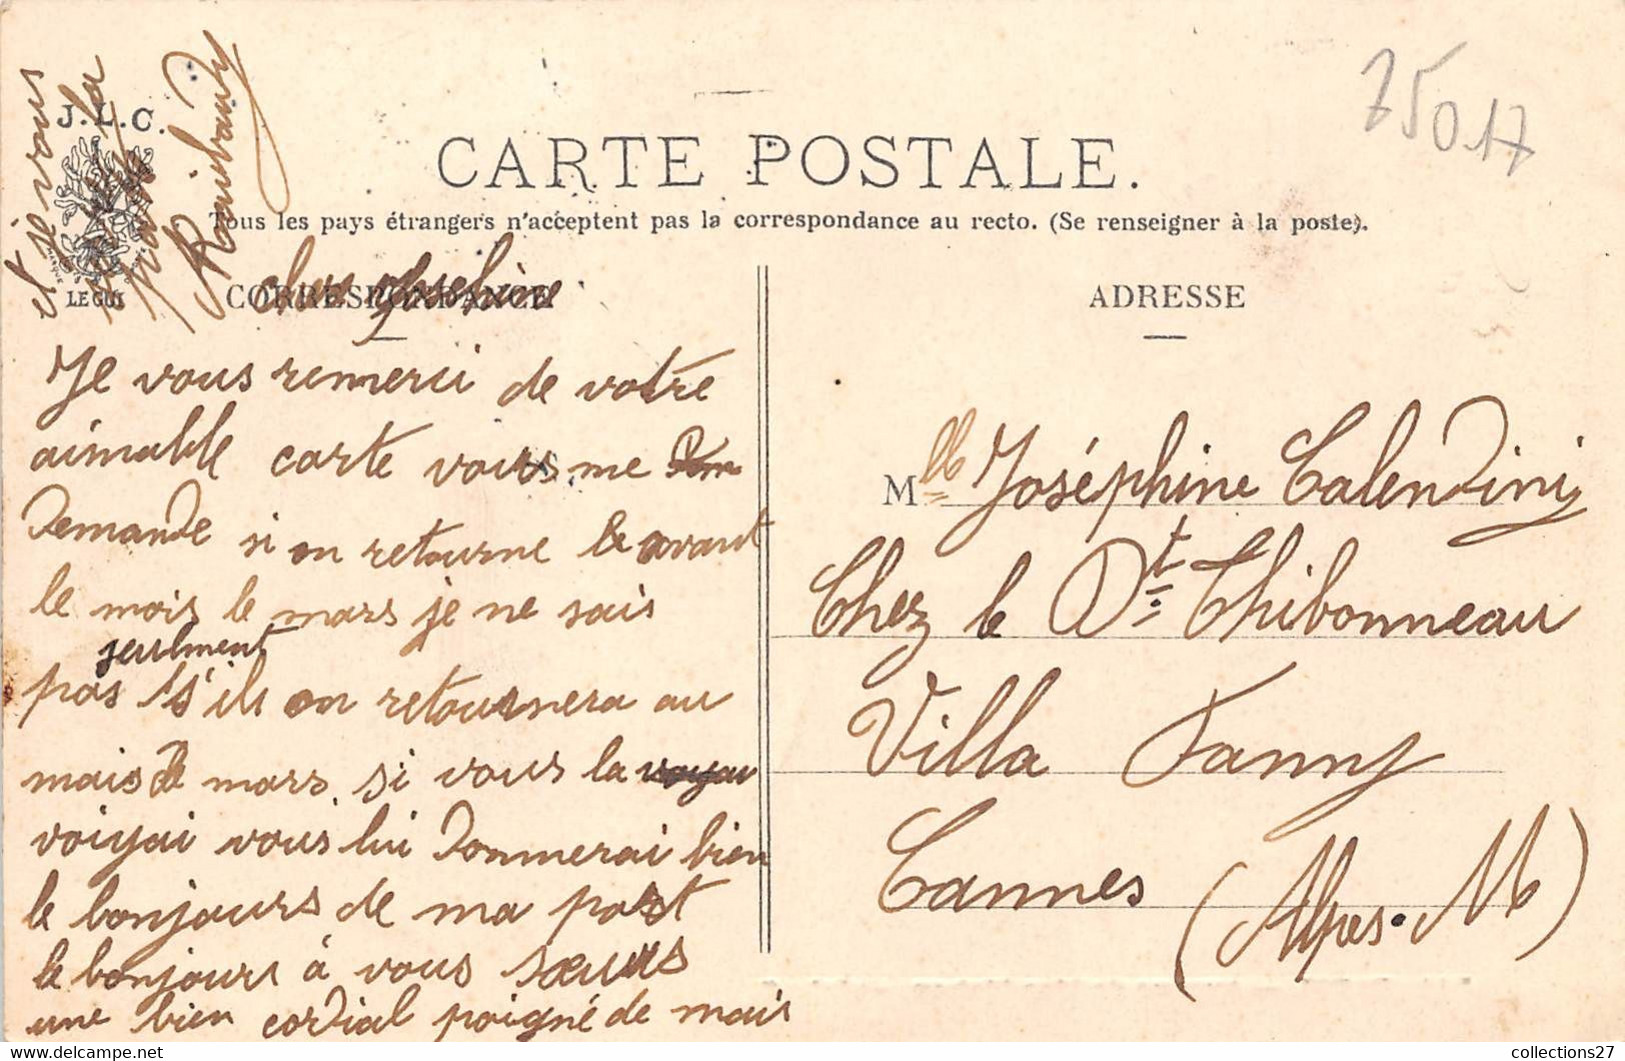 J.L.C.
LE GUI
75017
CARTE POSTALE.
Tous les pays étrangers n'acceptent pas la correspondance au recto. (Se renseigner à la poste).
CORRESPONDANCE
ADRESSE
Joséphine
Je vous remerci de votre
aimable carte vous me
demande si on retourne le avant
le mois le mars je ne sais
seulment
pas s'ils on retournera au
mais de mars. si vous la
voiyai vous lui donnerai bien
le bonjours de ma part
le bonjours à vous sœurs
une bien cordial poigné de mais
et je vous
la
Raimbaudy
Mlle Joséphine Calendini
Chez le Dt Thibonneau
Villa Fanny
Cannes (Alpes. M)
collections27